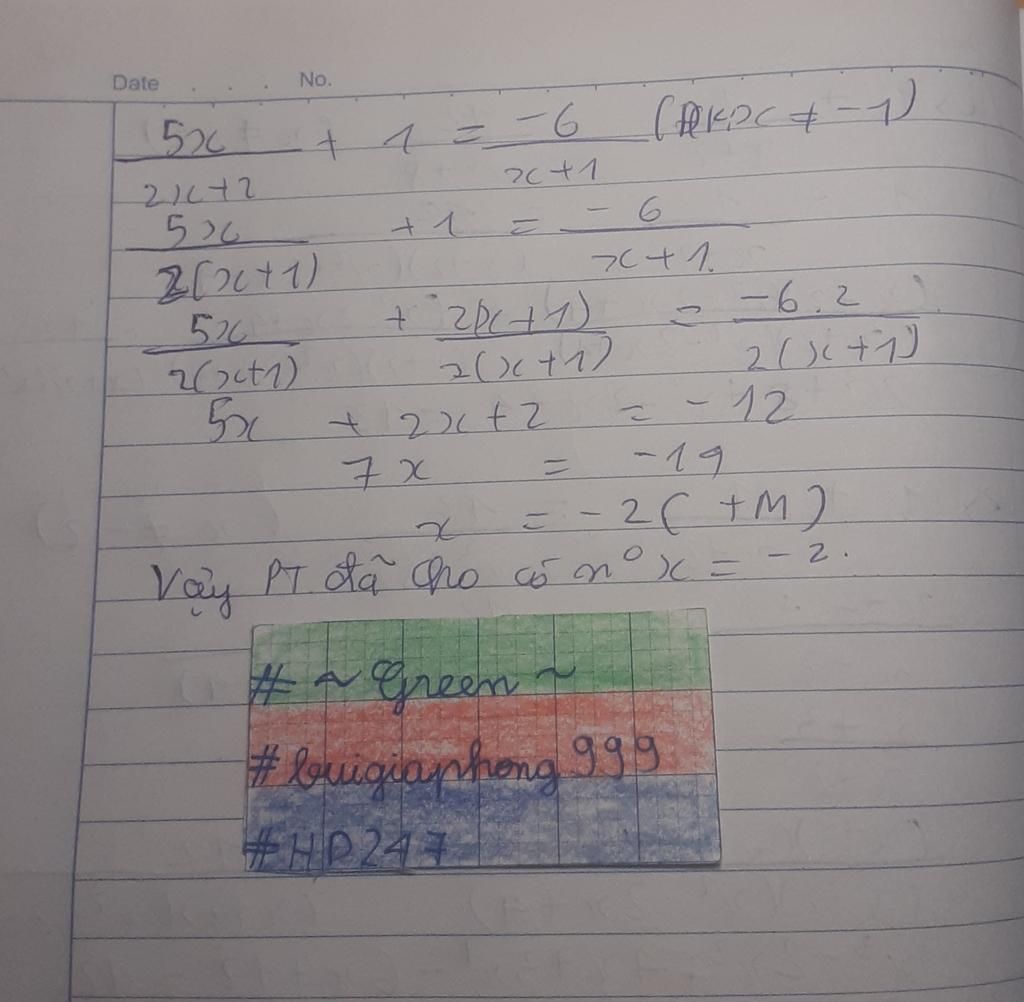 Date . . . . No.
5x/(2x+2) + 1 = -6/(x+1) (ĐK: x ≠ -1)
5x/(2(x+1)) + 1 = -6/(x+1)
5x/(2(x+1)) + 2(x+1)/(2(x+1)) = -6.2/(2(x+1))
5x + 2x+2 = -12
7x = -19
x = -2 ( +M)
Vậy PT đã cho có n° x = -2.
# ~ Green ~
#buigiaphong999
#HD247